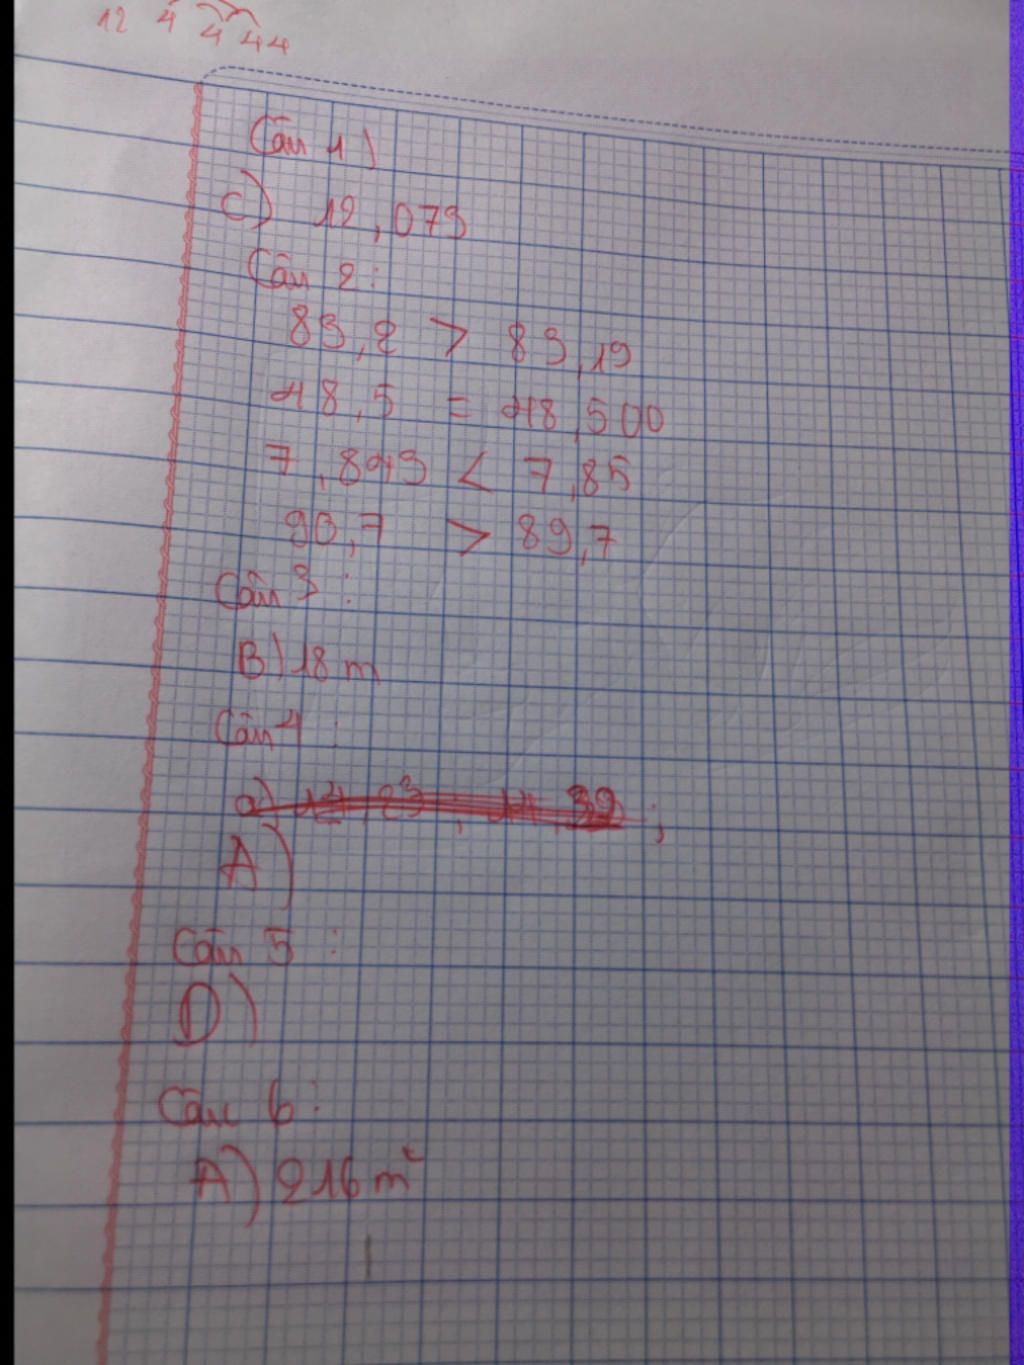 12 4 4 44
Câu 1)
C) 12,079
Câu 2:
83,2 > 83,19
48,5 = 48,500
7,843 < 7,85
90,7 > 89,7
Câu 3:
B) 18 m
Câu 4:
A)
Câu 5:
D)
Câu 6:
A) 216 m²